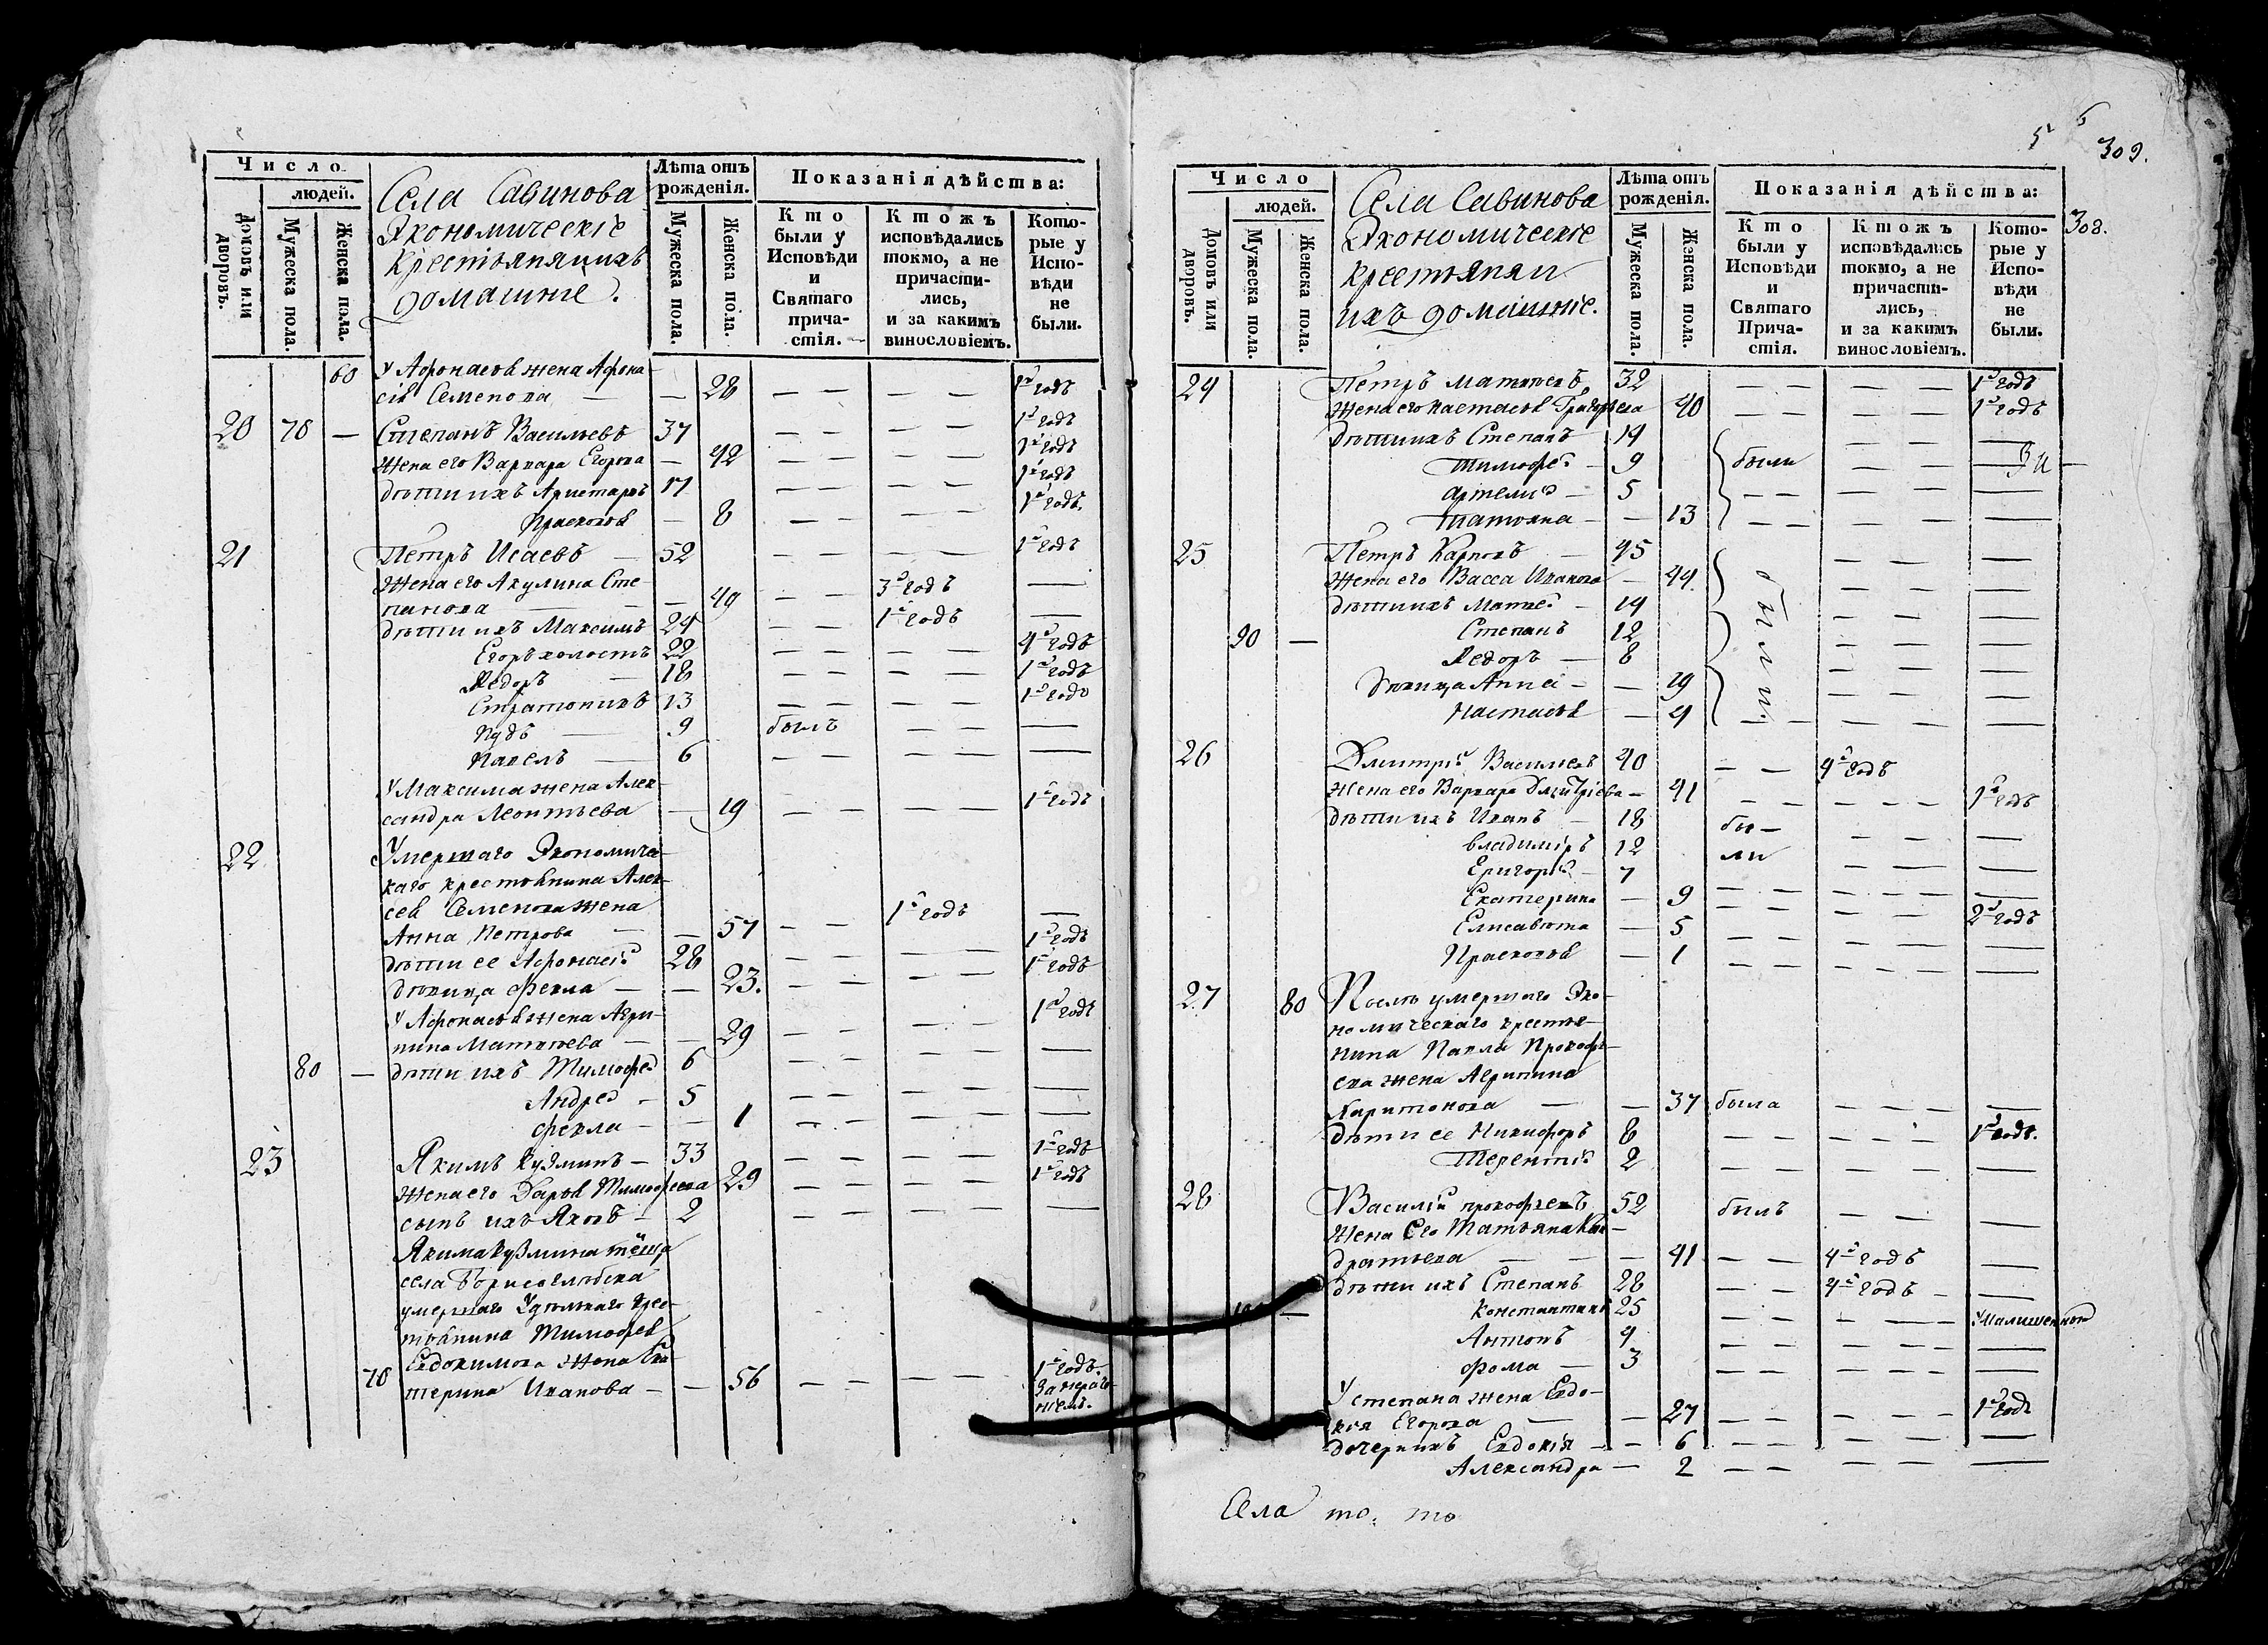 Число
людей.
Домовъ или дворовъ.
Мужеска пола.
Женска пола.
Села Савинова
Экономическіе
Крестьяня ихъ
домашніе.
Лѣта отъ рожденія.
Мужеска пола.
Женска пола.
Показанія дѣйства:
Кто были у Исповѣди и Святаго причастія.
Ктожъ исповѣдались токмо, а не причастились, и за какимъ винословіемъ.
Которые у Исповѣди не были.
60 У Афонасья жена Афона-
сія Семенова — — 28 — — — — 1й годъ
20 70 — Степанъ Васильевъ 37 — — — — 1й годъ
жена его Варвара Егорова — 42 — — — — 1й годъ
дѣти ихъ Аристархъ 17 — — — — 1й годъ
Прасковья — 8 — — — — 1й годъ
21 Петръ Исаевъ — 52 — — — — 1й годъ
жена его Акулина Сте-
панова — — 49 — — 3й годъ —
дѣти ихъ Максимъ 24 — — 1й годъ —
Егоръ холостъ 22 — — — — 4й годъ
Ѳедоръ — 18 — — — — 1й годъ
Стратоникъ 13 — — — — 1й годъ
Нудъ — 9 былъ — — —
Павелъ — 6 — — — — —
У Максима жена Алек-
сандра Леонтьева — 19 — — — — 1й годъ
22 Умершаго Экономиче-
каго крестьянина Алек-
сея Семенова жена
Анна Петрова — — 57 — — 1й годъ —
дѣти ее Афонасій 28 — — — — 1й годъ
дѣвица Фекла — — 23. — — — — 1й годъ
У Афонасья жена Агри-
пина Матвѣева — — 29 — — — — 1й годъ
80 — дѣти ихъ Тимофей 6 — — — — —
Андрей — 5 — — — — —
Фекла — — 1 — — — — —
23 Якимъ Кузминъ — 33 — — — — 1й годъ
жена его Дарья Тимофеева 29 — — — — 1й годъ
сынъ ихъ Яковъ — 2 — — — — —
Якима Кузмина тёща
села Борисоглебска
умершаго Удѣльнаго Крес-
тьянина Тимофея
Евдокимова жена Ека-
70 терина Иванова — — 56 — — — — 1й годъ

5 6
309.
308.
Число
людей.
Домовъ или дворовъ.
Мужеска пола.
Женска пола.
Села Савинова
Экономическіе
крестьяня и
ихъ домашніе.
Лѣта отъ рожденія.
Мужеска пола.
Женска пола.
Показанія дѣйства:
Кто были у Исповѣди и Святаго Причастія.
Ктожъ исповѣдались токмо, а не причастились, и за какимъ винословіемъ.
Которые у Исповѣди не были.
24 Петръ Матвѣевъ 32 — — — — 1й годъ
жена его Настасья Григорьева 40 — — — — 1й годъ
дѣти ихъ Степанъ — 14 — — —
Тимофей — 9 были — — —
Артемій — 5 — — — — —
Татьяна — — 13 — — — — —
25 Петръ Карповъ — 45 — — —
жена его Васса Иванова — 44 — — —
дѣти ихъ Матвей — 14 были — — —
90 — Степанъ 12 — — —
Ѳедоръ — 8 — — —
дѣвица Анна — — 19 — — —
Настасья — 4 — — — — —
26 Дмитрій Васильевъ 40 — — 4й годъ
жена его Варвара Дмитріева — 41 — — — — 1й годъ
дѣти ихъ Иванъ — 18 бы- — — —
Владиміръ 12 ли — — —
Григорій — 7 — — —
Екатерина — 9 — — — — —
Елисавета — 5 — — — — 2й годъ
Прасковья — 1 — — — — —
27 80 Послѣ умершаго Эко-
номическаго крестья-
нина Павла Прокофь-
ева жена Агрипина
Харитонова — — 37 была — — — —
дѣти ее Никифоръ 8 — — — — 1й годъ.
Терентій 2 — — — — —
28 Василій Прокофьевъ 52 былъ — — —
жена Его Татьяна Кон-
дратьева — — — 41 — — 4й годъ —
дѣти ихъ Степанъ 28 — — 4й годъ — —
— Константинъ 25 — — — —
Антонъ 9 — — — — —
Фома — 3 — — — — —
У Степана жена Евдо-
кія Егорова — — 27 — — — — 1й годъ
дочери ихъ Евдокія — — 6 — — — — —
Александра — 2 — — — — —
Села то, то